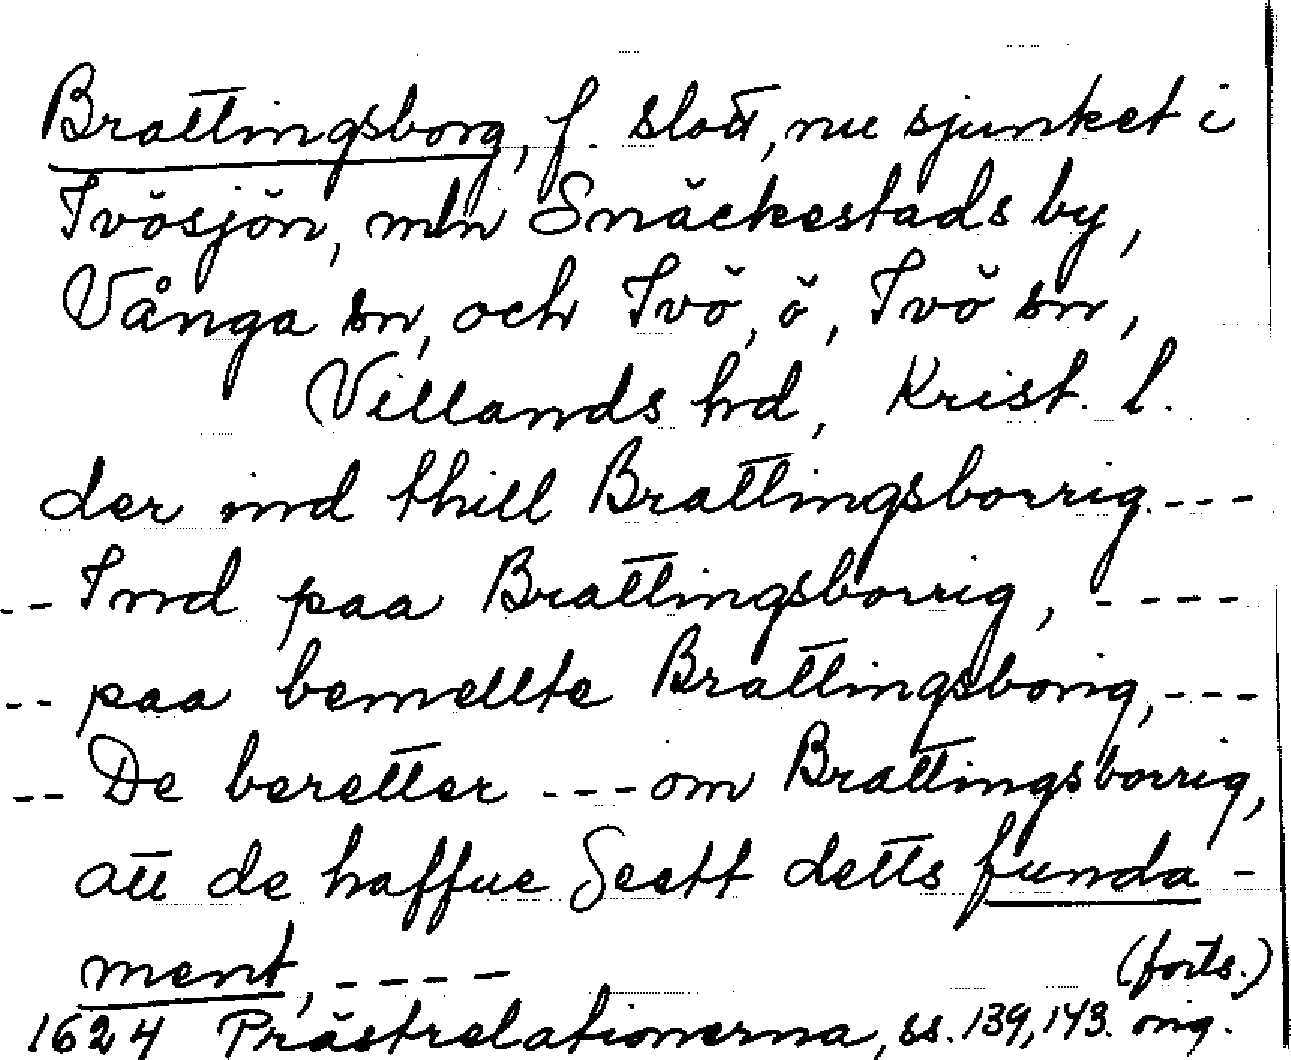 Brattingsborg, f. slott, nu sjunket i
Ivösjön, mln Snäckestads by,
Vånga sn, och Ivö, ö, Ivö sn,
Villands hd, Krist. l.
der ind thill Brattingsborrig ---
-- Ind paa Brattingsborrig, ----
-- paa bemellte Brattingsborig, ---
-- De beretter --- om Brattingsborrig,
att de haffue Seett detts funda-
ment, ---- (forts.)
1624 Prästrelationerna, ss. 139, 143. orig.